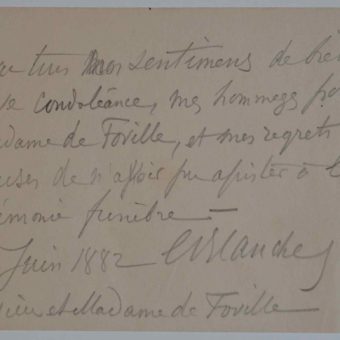 tous mes sentimens de
condoléance, mes hommages
dame de Foville, et mes regrets
de n'avoir pu assister à l
émonie funèbre —
Juin 1882 E Blanche
et Madame de Foville